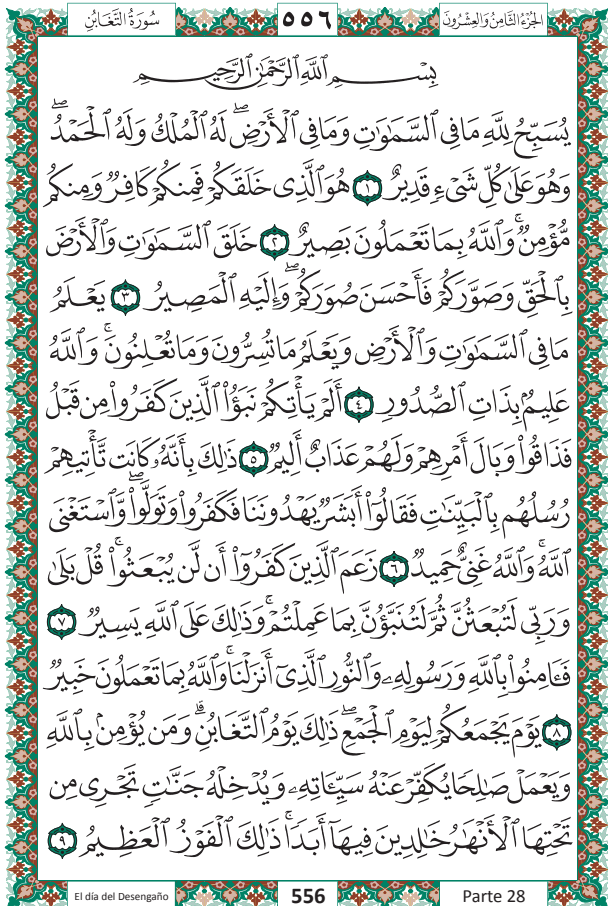 الجُزْءُ الثَّامِنُ وَالعِشْرُونَ ٥٥٦ سُورَةُ التَّغَابُنِ
بِسْمِ اللَّهِ الرَّحْمَٰنِ الرَّحِيمِ
يُسَبِّحُ لِلَّهِ مَا فِي السَّمَٰوَٰتِ وَمَا فِي الْأَرْضِۖ لَهُ الْمُلْكُ وَلَهُ الْحَمْدُۖ
وَهُوَ عَلَىٰ كُلِّ شَيْءٍ قَدِيرٌ ١ هُوَ الَّذِي خَلَقَكُمْ فَمِنكُمْ كَافِرٌ وَمِنكُم
مُّؤْمِنٌۚ وَاللَّهُ بِمَا تَعْمَلُونَ بَصِيرٌ ٢ خَلَقَ السَّمَٰوَٰتِ وَالْأَرْضَ
بِالْحَقِّ وَصَوَّرَكُمْ فَأَحْسَنَ صُوَرَكُمْۖ وَإِلَيْهِ الْمَصِيرُ ٣ يَعْلَمُ
مَا فِي السَّمَٰوَٰتِ وَالْأَرْضِ وَيَعْلَمُ مَا تُسِرُّونَ وَمَا تُعْلِنُونَۚ وَاللَّهُ
عَلِيمٌۢ بِذَاتِ الصُّدُورِ ٤ أَلَمْ يَأْتِكُمْ نَبَؤُا۟ الَّذِينَ كَفَرُوا۟ مِن قَبْلُ
فَذَاقُوا۟ وَبَالَ أَمْرِهِمْ وَلَهُمْ عَذَابٌ أَلِيمٌ ٥ ذَٰلِكَ بِأَنَّهُۥ كَانَت تَّأْتِيهِمْ
رُسُلُهُم بِالْبَيِّنَٰتِ فَقَالُوٓا۟ أَبَشَرٌ يَهْدُونَنَا فَكَفَرُوا۟ وَتَوَلَّوا۟ۖ وَّاسْتَغْنَى
اللَّهُۚ وَاللَّهُ غَنِيٌّ حَمِيدٌ ٦ زَعَمَ الَّذِينَ كَفَرُوٓا۟ أَن لَّن يُبْعَثُوا۟ۚ قُلْ بَلَىٰ
وَرَبِّي لَتُبْعَثُنَّ ثُمَّ لَتُنَبَّؤُنَّ بِمَا عَمِلْتُمْۚ وَذَٰلِكَ عَلَى اللَّهِ يَسِيرٌ ٧
فَـَٔامِنُوا۟ بِاللَّهِ وَرَسُولِهِۦ وَالنُّورِ الَّذِيٓ أَنزَلْنَاۚ وَاللَّهُ بِمَا تَعْمَلُونَ خَبِيرٌ
٨ يَوْمَ يَجْمَعُكُمْ لِيَوْمِ الْجَمْعِۖ ذَٰلِكَ يَوْمُ التَّغَابُنِۗ وَمَن يُؤْمِنۢ بِاللَّهِ
وَيَعْمَلْ صَٰلِحًا يُكَفِّرْ عَنْهُ سَيِّـَٔاتِهِۦ وَيُدْخِلْهُ جَنَّٰتٍ تَجْرِي مِن
تَحْتِهَا الْأَنْهَٰرُ خَٰلِدِينَ فِيهَآ أَبَدًاۚ ذَٰلِكَ الْفَوْزُ الْعَظِيمُ ٩
El día del Desengaño 556 Parte 28